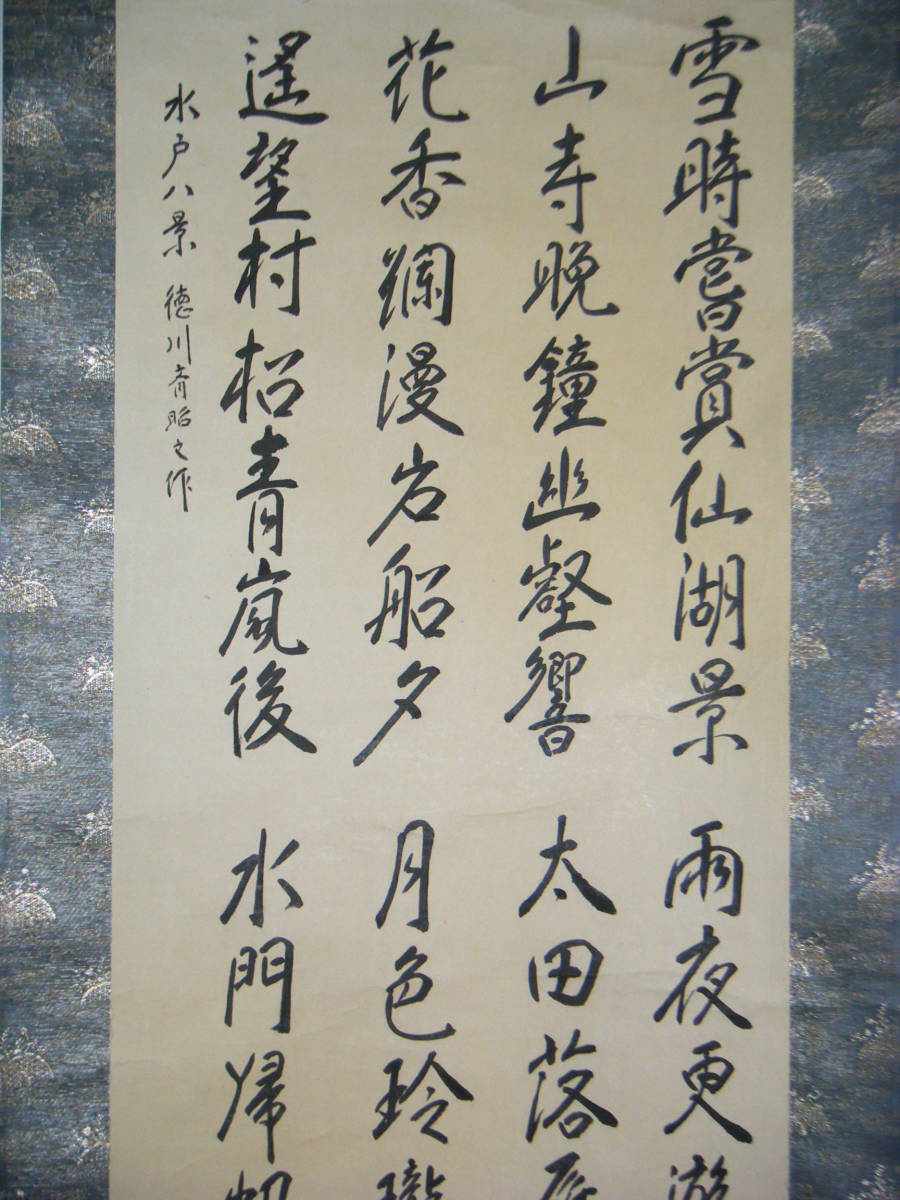 雪時嘗賞仙湖景 雨夜更游
山寺晩鐘幽壑響 太田落雁
花香爛漫岩船夕 月色玲瓏
遥望村松青嵐後 水門帰帆
水戸八景 徳川斉昭之作